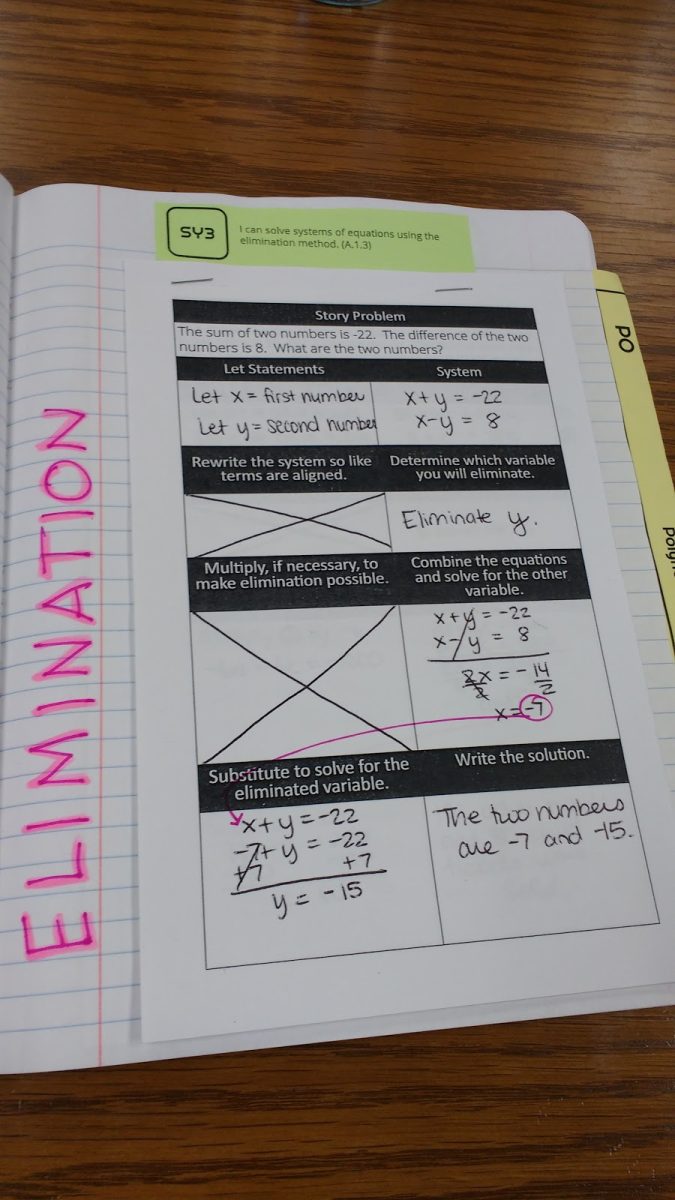 SY3
I can solve systems of equations using the
elimination method. (A.1.3)
PO
ELIMINATION
Story Problem
The sum of two numbers is -22. The difference of the two
numbers is 8. What are the two numbers?
Let Statements
System
Let x = first number
Let y = second number
x+y = -22
x-y = 8
Rewrite the system so like
terms are aligned.
Determine which variable
you will eliminate.
Eliminate y.
Multiply, if necessary, to
make elimination possible.
Combine the equations
and solve for the other
variable.
x+y = -22
x-y = 8
2x = -14
2 2
x=-7
Substitute to solve for the
eliminated variable.
Write the solution.
x+y = -22
-7+y = -22
+7 +7
y = -15
The two numbers
are -7 and -15.